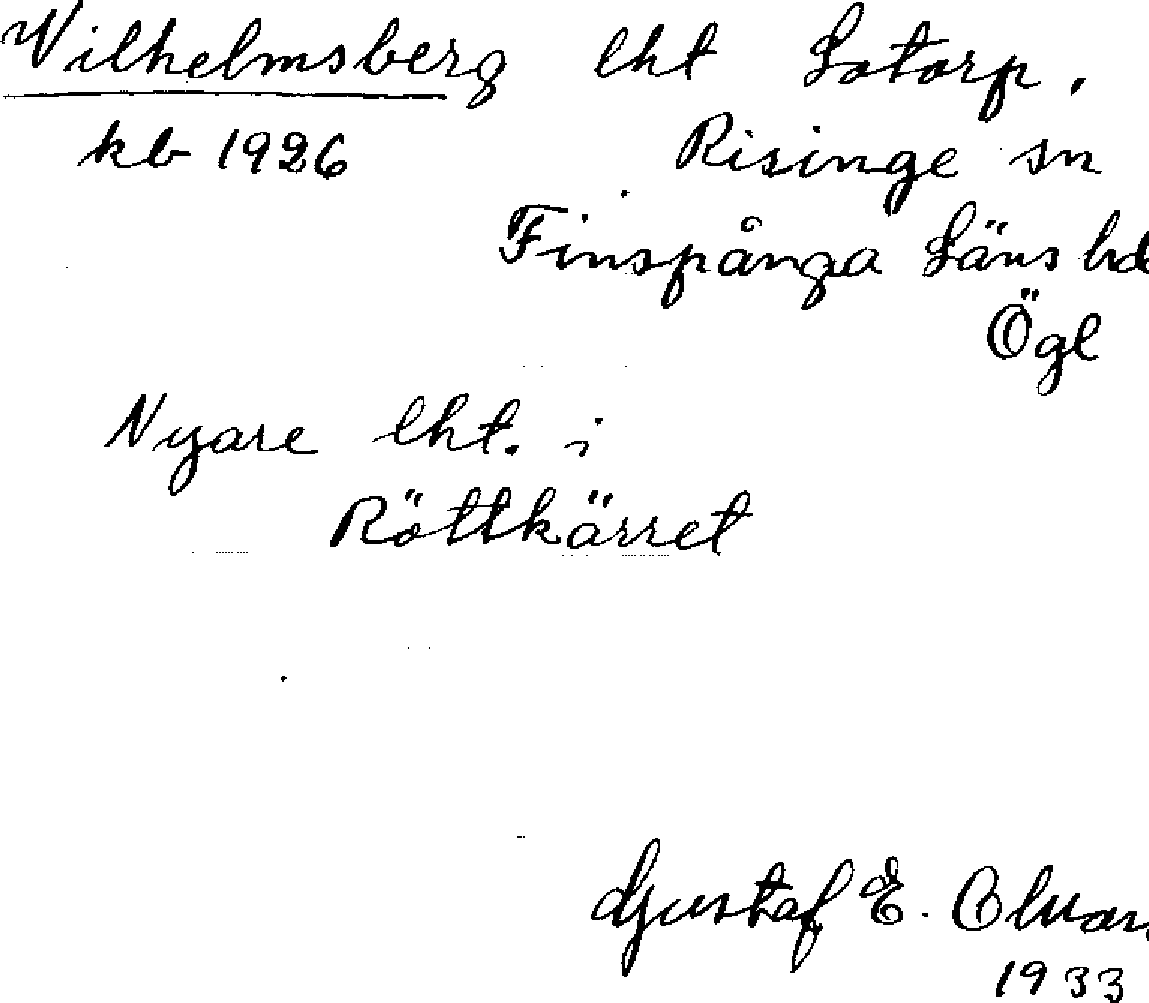 Wilhelmsberg lht Lotorp,
kb 1926 Risinge sn
Finspånga Läns hd
Ögl
Nyare lht. i
Röttkärret
Gustaf E.
1933